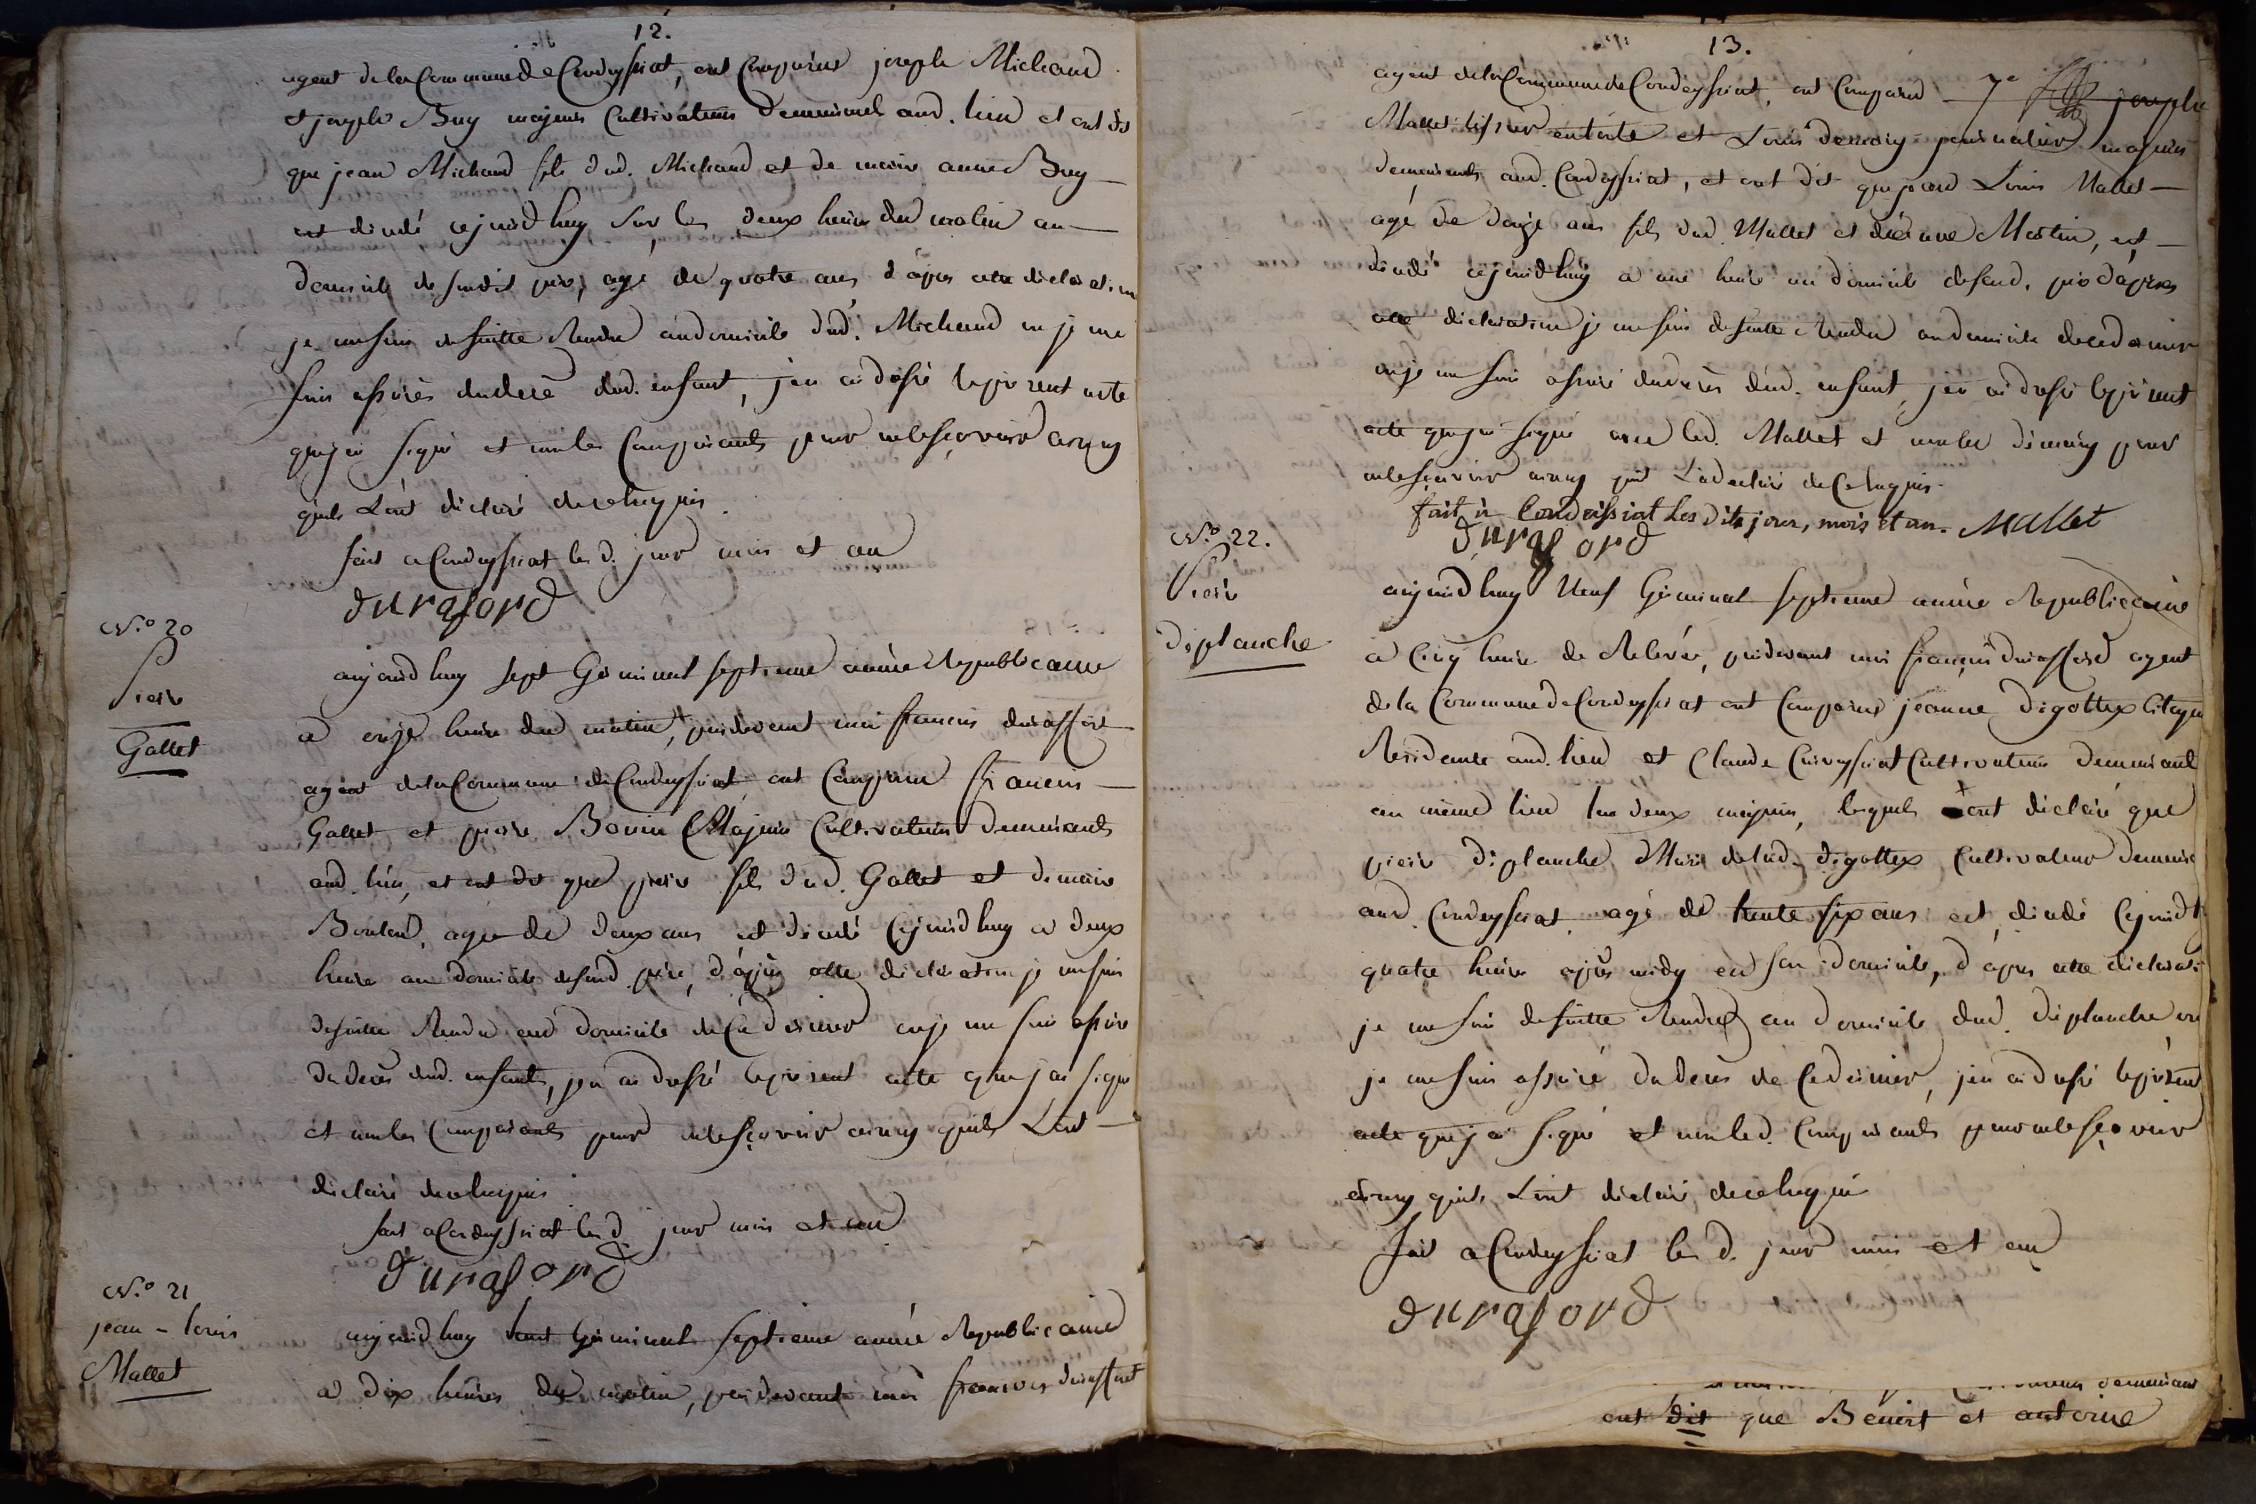 12.
agent de la Commune de Condeyssiat, ont Comparus joseph Michaud
et joseph Buy majeurs Cultivateurs demeurants aud. lieu et ont dit
que jean Michaud fils dud. Michaud et de marie anne Buy
est décédé cejourd'huy sur les deux heures du matin au
domicile de sondit père, agé de quatre ans d'apres cette déclaration
je me suis desuitte Rendu au domicile dud. Michaud ou je me
suis assurés du decè dud. enfant, j'en ai dressé le present acte
que j'ai signé et non les Comparants pour ne le sçavoir ainsy
quils L'ont déclaré de ce Requis.
fait a Condeyssiat les d. jour mois et an
duraford
N.º 20
Pierre
Gallet
aujourd'huy sept Germinal septieme année Republicaine
a onze heures du matin, pardevant moi francois duraffort
agent de la Commune de Condeyssiat ont Comparu francois
Gallet et pierre Bovin Majeurs Cultivateurs demeurants
aud. lieu, et ont dit que pierre fils dud. Gallet et de marie
agé de deux ans est décédé Cejourd'huy a deux
heures au domicile de sond. père, d'après cette declaration je me suis
desuitte Rendu aud domicile de Ce dernier ou je me suis assuré
du decès dud. enfants, j'en ai dressé le present acte que j'ai signé
et non les Comparants pour ne le sçavoir ainsy quils L'ont
déclaré de ce Requis
fait a Condeyssiat les d. jour mois et an
duraford
N.º 21
jean - louis
Mallet
aujourd'huy huit Germinal septieme année Republicaine
a dix heures du matin, pardevant moi francois duraffort
13.
agent de la Commune de Condeyssiat, ont Comparu joseph
Mallet tissier en toile et Louis demary journalier majeurs
demeurants aud. Condeyssiat, et ont dit que jean Louis Mallet
agé de douze ans fils dud. Mallet et Martin, est
décédé cejourd'huy a une heure au domicile de sond. père d'apres
cette declaration je me suis desuitte Rendu au domicile de ce dernier
ou je me suis assuré du decès dud. enfant, j'en ai dressé le present
acte que j'ai signé avec led. Mallet et non led demary pour
ne le sçavoir ainsy quil L'a declaré de Ce Requis.
fait à Condeissiat Les dits jour, mois et an. Mallet
duraford
N.º 22.
Pierre
diplanche
aujourd'huy Neuf Germinal septieme année Republicaine
a Cinq heures de Relevée, pardevant moi françois durafford agent
de la Commune de Condeyssiat ont Comparus jeanne digottex Citoyen
Residente aud. lieu et Claude Cultivateur demeurant
au même lieu tous deux majeurs, lesquels ont déclaré que
pierre diplanche Mari de lad. digottex Cultivateur demeura
aud. Condeyssiat agé de trente six ans est décédé Cejourd'h
quatre heures après midy en son domicile, d'apres cette déclarati
je me suis desuitte Rendu au domicile dud. diplanche ou
je me suis assuré du decès de Ce dernier, j'en ai dressé le présent
acte que j'ai signé et non led. Comparants pour ne le sçavoir
ainsy quils L'ont déclaré de ce Requis
fait a Condeyssiat les d. jour mois et an
duraford
demeurant
ont dit que Bénoit et antoine